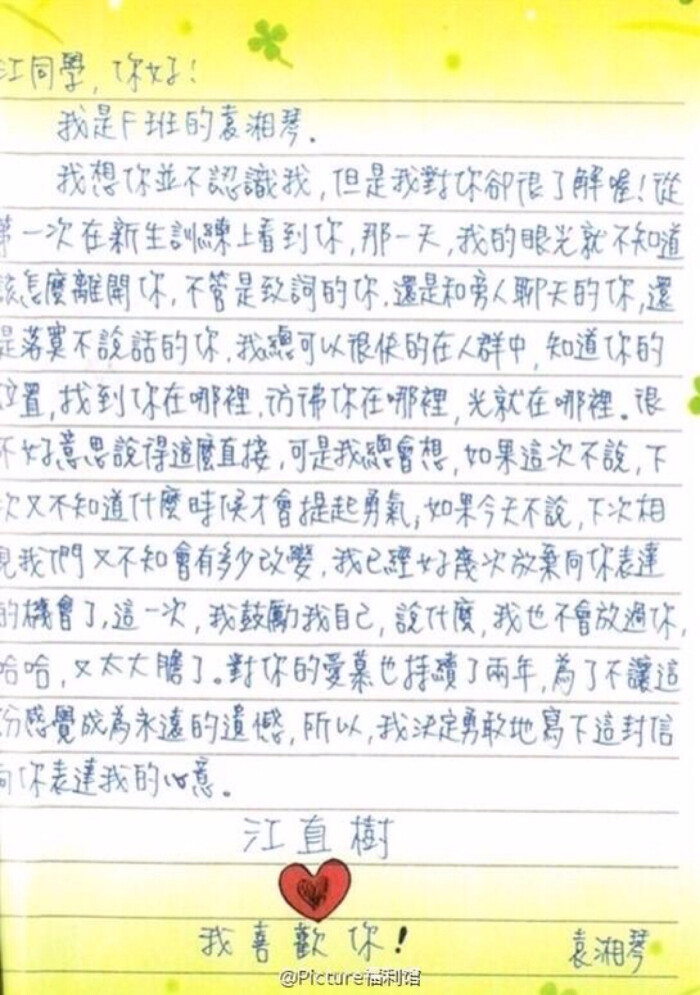 江同學，你好！
我是F班的袁湘琴．
我想你並不認識我，但是我對你卻很了解喔！從
第一次在新生訓練上看到你，那一天，我的眼光就不知道
該怎麼離開你，不管是致詞的你，還是和旁人聊天的你，還
是落寞不說話的你．我總可以很快的在人群中，知道你的
位置，找到你在哪裡．彷彿你在哪裡，光就在哪裡。很
不好意思說得這麼直接，可是我總會想，如果這次不說，下
次又不知道什麼時候才會提起勇氣；如果今天不說，下次相
見我們又不知會有多少改變．我已經好幾次放棄向你表達
的機會了，這一次，我鼓勵我自己，說什麼，我也不會放過你，
哈哈，又太大膽了。對你的愛慕也持續了兩年，為了不讓這
份感覺成為永遠的遺憾，所以，我決定勇敢地寫下這封信
向你表達我的心意。
江直樹
我喜歡你！ 袁湘琴
@Picture福利馆